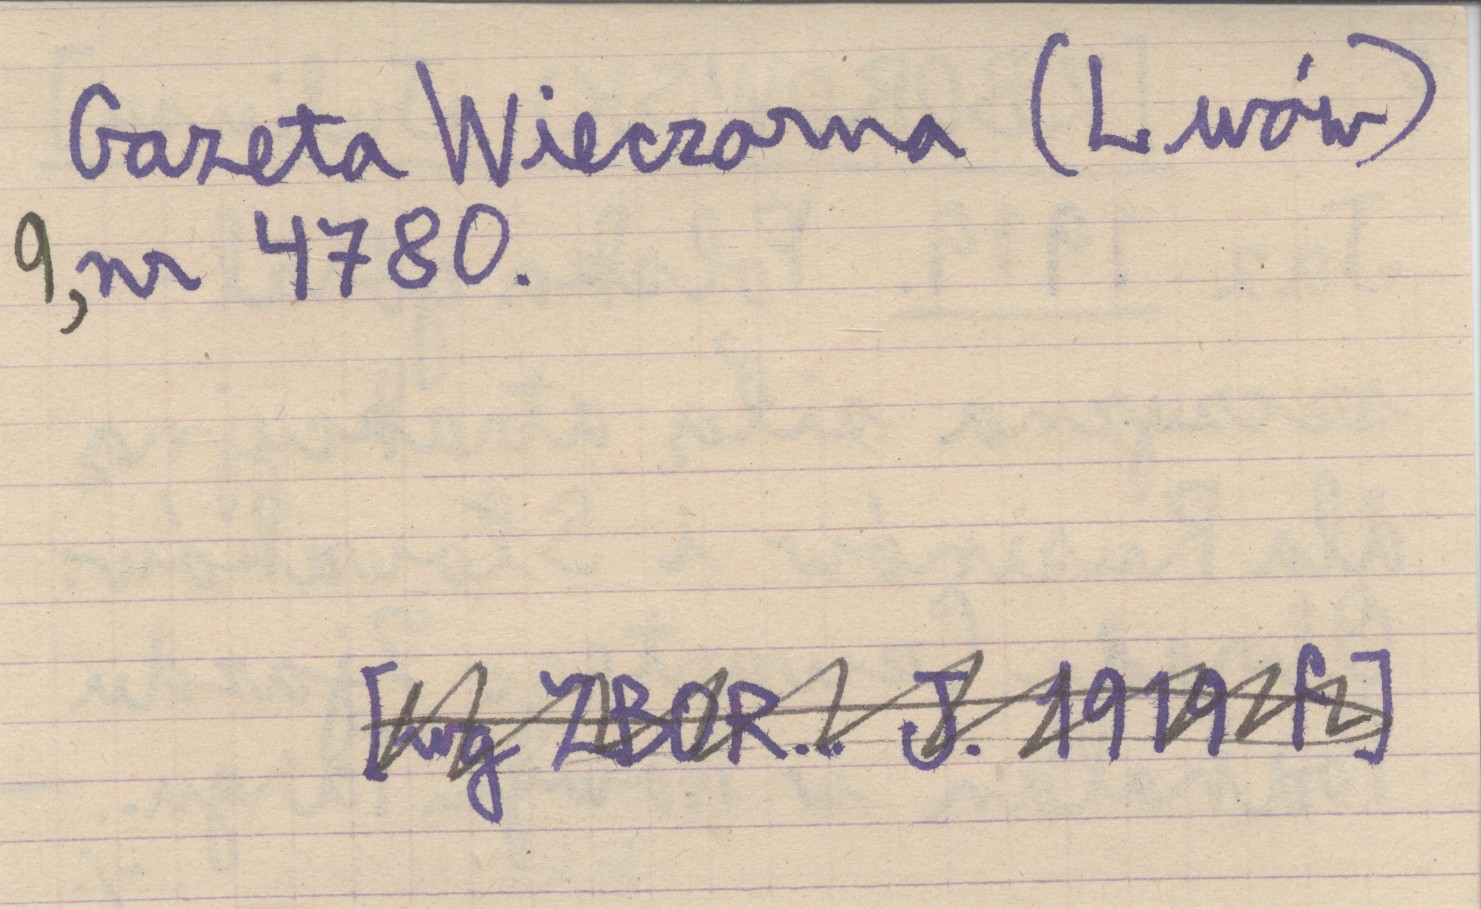 Gazeta Wieczorna (Lwów)
9, nr 4780.
[wg ZBOR... J. 1919 f]